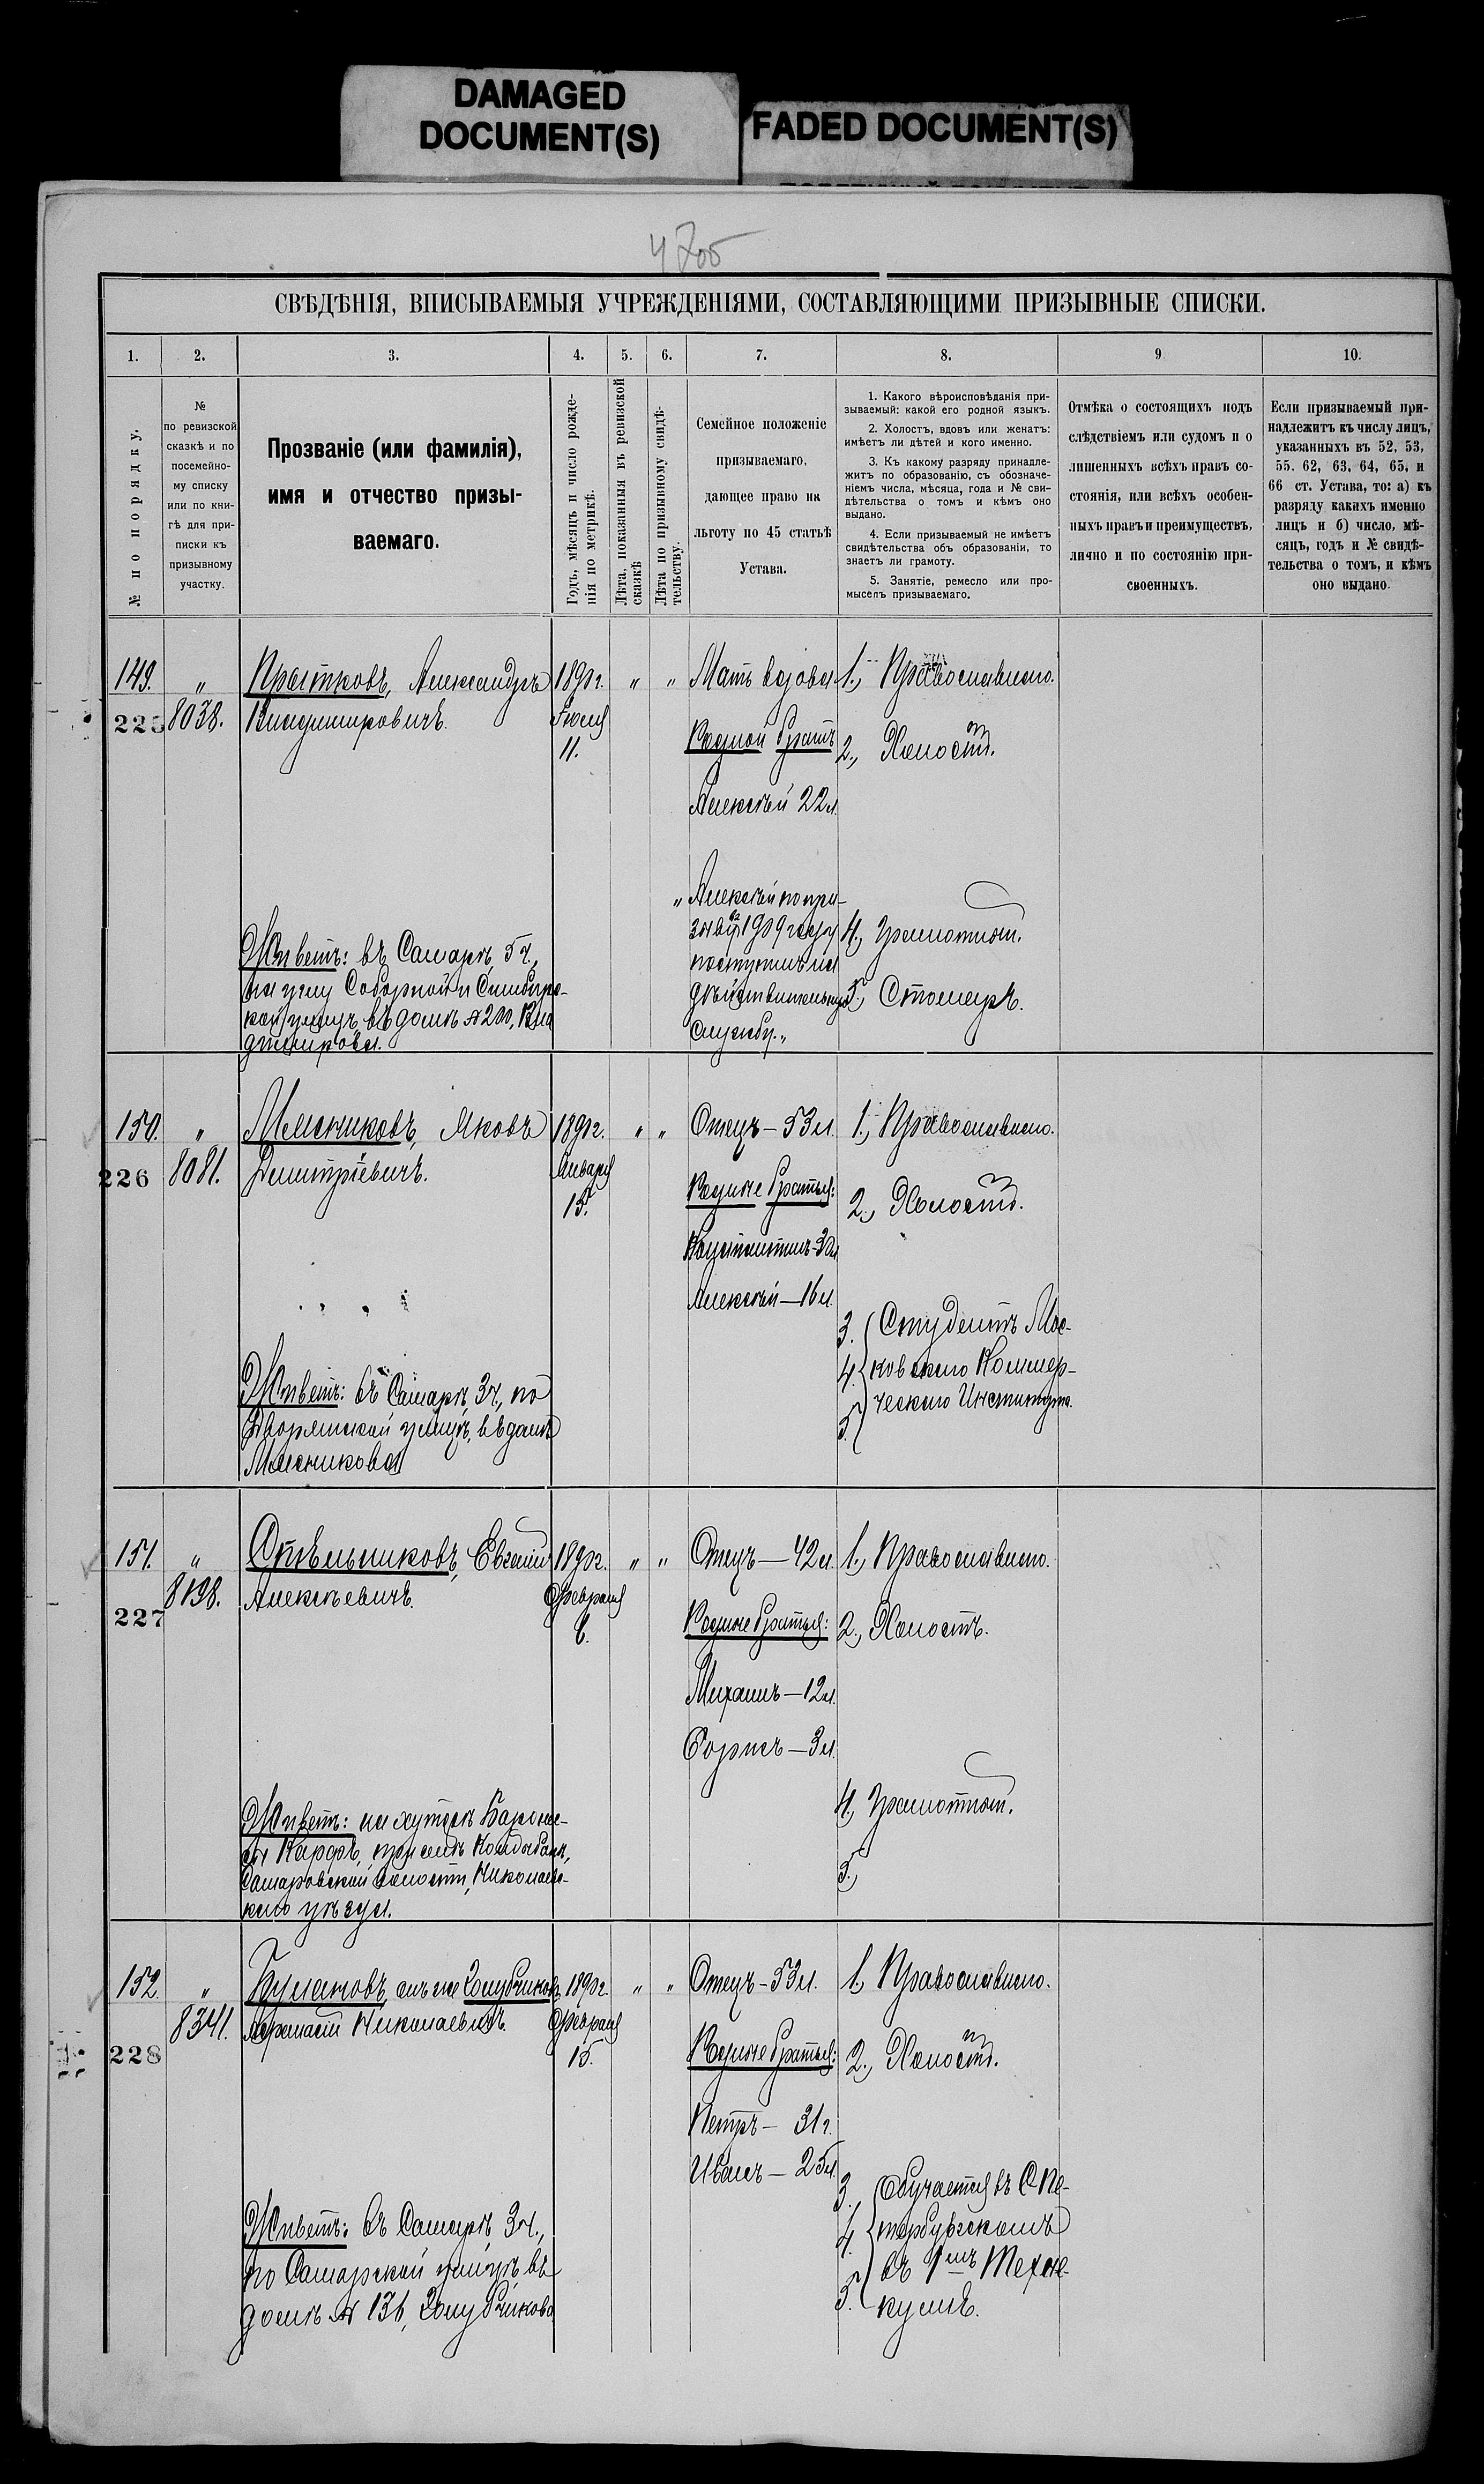 DAMAGED
DOCUMENT(S)
FADED DOCUMENT(S)
СВѢДѢНІЯ, ВПИСЫВАЕМЫЯ УЧРЕЖДЕНІЯМИ, СОСТАВЛЯЮЩИМИ ПРИЗЫВНЫЕ СПИСКИ.
1. 2. 3. 4. 5. 6. 7. 8. 9 10.
№ по порядку.
№
по ревизской
сказкѣ и по
посемейно-
му списку
или по кни-
гѣ для при-
писки къ
призывному
участку.
Прозваніе (или фамилія),
имя и отчество призы-
ваемаго.
Годъ, мѣсяцъ и число рожде-
нія по метрикѣ.
Лѣта, показанныя въ ревизской
сказкѣ
Лѣта по призывному свидѣ-
тельству.
Семейное положеніе
призываемаго,
дающее право на
льготу по 45 статьѣ
Устава.
1. Какого вѣроисповѣданія при-
зываемый: какой его родной языкъ.
2. Холостъ, вдовъ или женатъ:
имѣетъ ли дѣтей и кого именно.
3. Къ какому разряду принадле-
житъ по образованію, съ обозначе-
ніемъ числа, мѣсяца, года и № сви-
дѣтельства о томъ и кѣмъ оно
выдано.
4. Если призываемый не имѣетъ
свидѣтельства объ образованіи, то
знаетъ ли грамоту.
5. Занятіе, ремесло или про-
мыселъ призываемаго.
Отмѣка о состоящихъ подъ
слѣдствіемъ или судомъ и о
лишенныхъ всѣхъ правъ со-
стоянія, или всѣхъ особен-
ныхъ правъ и преимуществъ,
лично и по состоянію при-
своенныхъ.
Если призываемый при-
надлежитъ къ числу лицъ,
указанныхъ въ 52, 53,
55. 62, 63, 64, 65, и
66 ст. Устава, то: а) къ
разряду какихъ именно
лицъ и б) число, мѣ-
сяцъ, годъ и № свидѣ-
тельства о томъ, и кѣмъ
оно выдано.
149.
225
"
8038.
Прытковъ, Александръ
Владиміровичъ.
Живетъ: въ Самарѣ, 5ч.,
на углу Соборной и Симбирс-
кой улицъ, въ домѣ № 200, Вла
димирова.
189 г.
Іюля
11.
" "
Мать вдова
Родной братъ
Алексѣй 22л.
"Алексѣй по при-
зыву 1909 году
поступилъ на
дѣйствительную
службу."
1., Православнаго.
2., Холостъ.
4., Грамотный.
5., Столяръ.
150.
226
"
8081.
Мясниковъ, Яковъ
Дмитріевичъ.
Живетъ: въ Самарѣ, 3ч., по
Дворянской улицѣ, въ домѣ
Мясникова
189 г.
Января
15.
" "
Отецъ — 53л.
Родные братья:
Константинъ
Алексѣй — 16л.
1., Православнаго.
2., Холостъ.
3. Студентъ Мос-
4. ковскаго Коммер-
5. ческаго Института.
151.
227
"
8198.
Стѣльниковъ, Евгеній
Алексѣевичъ.
Живетъ: на хуторѣ Баронес-
сы Кардфъ, при селѣ Колдыбанѣ,
волости, Николаевс-
каго уѣзда.
189 г.
Февраля
6.
" "
Отецъ — 42л.
Родные братья:
Михаилъ — 12л.
Борисъ — 3л.
1., Православнаго.
2., Холостъ.
4., Грамотный.
5.,
152.
228
"
8341.
онъ же Голубчиковъ,
Николаевичъ.
Живетъ: въ Самарѣ 3ч.,
по Самарской улицѣ въ
домѣ № 136, Голубчикова
189 г.
Февраля
15.
" "
Отецъ — 53л.
Родные братья:
Петръ — 31г.
Иванъ — 25л.
1., Православнаго.
2., Холостъ.
3. Обучается въ С Пе-
4. тербургскомъ
5. въ